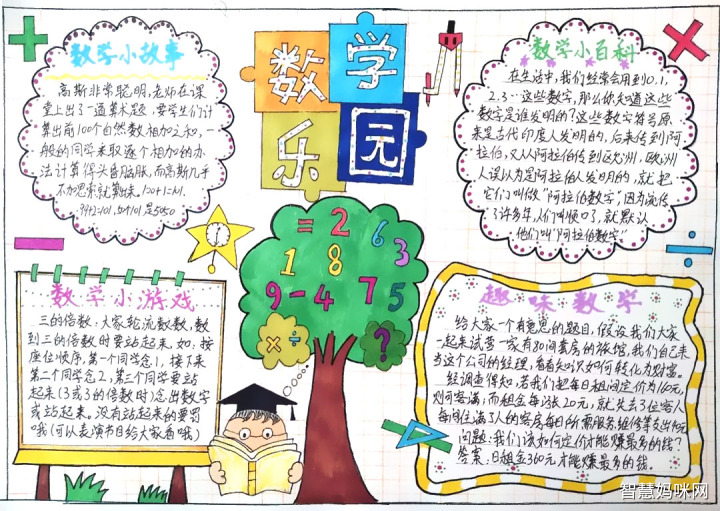 数学小故事
高斯非常聪明,老师在课
堂上出了一道算术题,要学生们计
算出前100个自然数相加之和,一
般的同学采取逐个相加的办
法计算得头昏脑胀,而高斯几乎
不加思索就算出来。
数学
乐园
数学小百科
在生活中,我们经常会用到0.1.
2.3…这些数字,那么你知道这些
数字是谁发明的?这些数字符号原
来是古代印度人发明的,后来传到阿
拉伯,又从阿拉伯传到欧洲,欧洲
人误认为是阿拉伯人发明的,就把
它们叫做“阿拉伯数字”因为流传
了许多年,人们叫顺口了,就默认
他们叫“阿拉伯数字”
= 2 6
1 8 3
9 - 4 7 5
× ÷ ?
数学小游戏
三的倍数:大家轮流数数,数
到三的倍数时要站起来,如:按
座位顺序,第一个同学念1,接下来
第二个同学念2,第三个同学要站
起来(3或3的倍数时)念出数字
或站起来。没有站起来的要罚
哦(可以表演节目给大家看哦)
趣味数学
给大家一个有意思的题目,假设我们大家
一起来试营一家有80间套房的旅馆,我们自己来
当这个公司的经理,看看知识如何转化为财富。
经调查得知,若我们把每日租间定价为160元,
则可客满;而租金每涨20元,就失去3位客人
问题:我们该如何定价才能赚最多的钱?
答案:日租金360元才能赚最多的钱。
智慧妈咪网